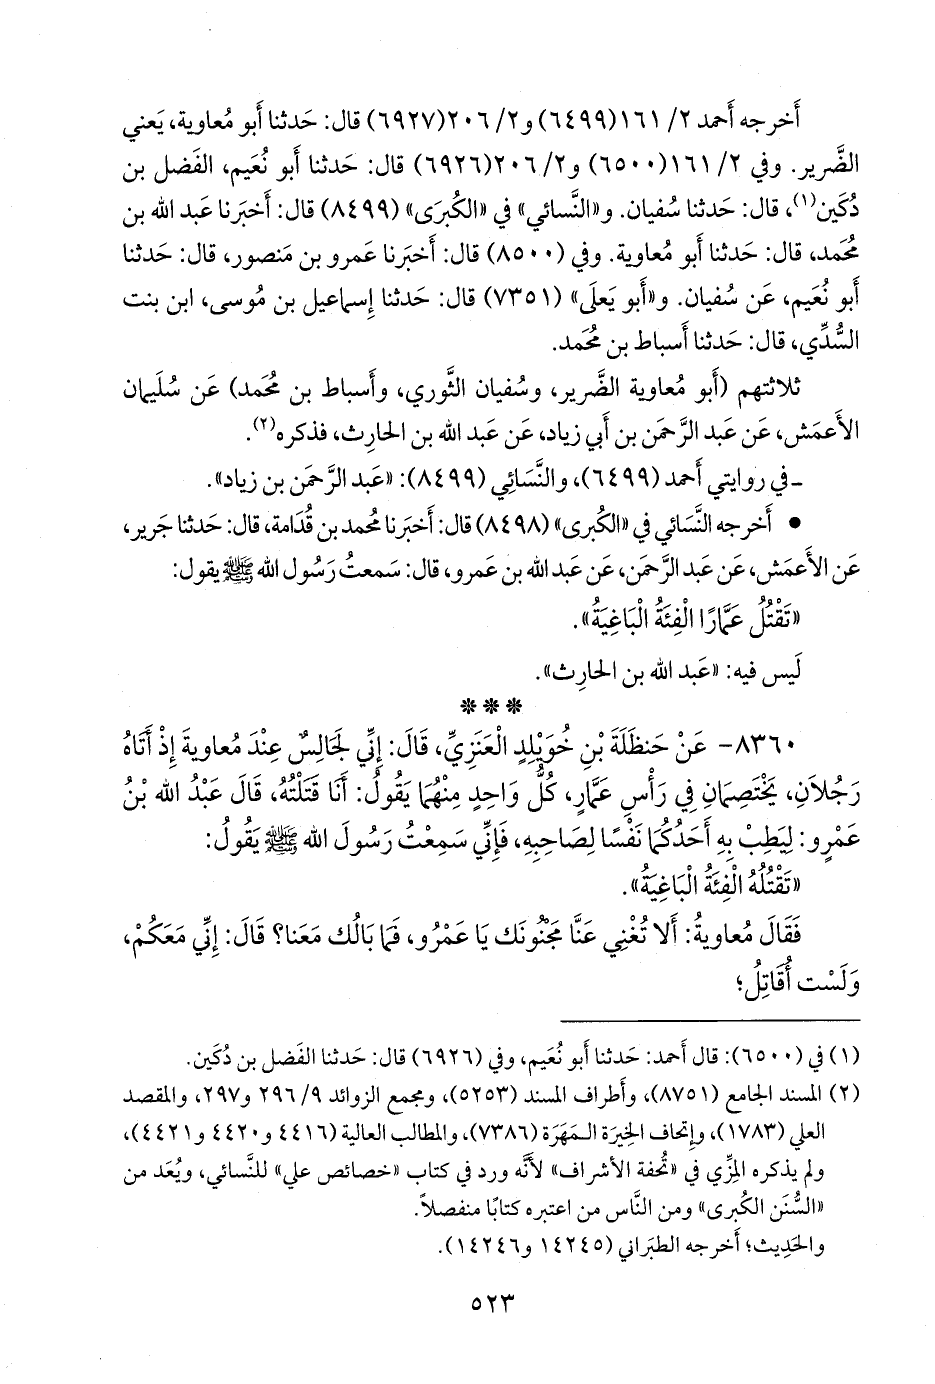 أَخرجه أَحمد ٢/ ١٦١(٦٤٩٩) و٢/ ٢٠٦(٦٩٢٧) قال: حَدثنا أَبو مُعاوية، يَعني
الضَّرير. وفي ٢/ ١٦١(٦٥٠٠) و٢/ ٢٠٦(٦٩٢٦) قال: حَدثنا أَبو نُعَيم، الفَضل بن
دُكَين(١)، قال: حَدثنا سُفيان. و«النَّسائي» في «الكُبرَى» (٨٤٩٩) قال: أَخبَرنا عَبد الله بن
مُحمد، قال: حَدثنا أَبو مُعاوية. وفي (٨٥٠٠) قال: أَخبَرنا عَمرو بن مَنصور، قال: حَدثنا
أَبو نُعَيم، عَن سُفيان. و«أَبو يَعلَى» (٧٣٥١) قال: حَدثنا إِسماعيل بن مُوسى، ابن بنت
السُّدِّي، قال: حَدثنا أَسباط بن مُحمد.
ثلاثتهم (أَبو مُعاوية الضَّرير، وسُفيان الثَّوري، وأَسباط بن مُحمد) عَن سُلَيمان
الأَعمَش، عَن عَبد الرَّحمَن بن أَبي زياد، عَن عَبد الله بن الحارِث، فذكره(٢).
ـ في روايتي أَحمد (٦٤٩٩)، والنَّسَائِي (٨٤٩٩): «عَبد الرَّحمَن بن زياد».
• أَخرجه النَّسَائي في «الكُبرى» (٨٤٩٨) قال: أَخبَرنا مُحمد بن قُدَامة، قال: حَدثنا جَرير،
عَن الأَعمَش، عَن عَبد الرَّحمَن، عَن عَبد الله بن عَمرو، قال: سَمعتُ رَسُول الله ﷺ يقول:
«تَقْتُلُ عَمَّارًا الْفِئَةُ الْبَاغِيَةُ».
لَيس فيه: «عَبد الله بن الحارِث».
***
٨٣٦٠- عَنْ حَنظَلَةَ بْنِ خُوَيْلِدٍ الْعَنَزِيِّ، قَالَ: إِنِّي لَجَالِسٌ عِنْدَ مُعاويةَ إِذْ أَتَاهُ
رَجُلاَنِ، يَخْتَصِمَانِ فِي رَأْسِ عَمَّارٍ، كُلُّ وَاحِدٍ مِنْهُمَا يَقُولُ: أَنَا قَتَلْتُهُ، قَالَ عَبْدُ الله بْنُ
عَمْرٍو: لِيَطِبْ بِهِ أَحَدُكُمَا نَفْسًا لِصَاحِبِهِ، فَإِنِّي سَمِعْتُ رَسُولَ الله ﷺ يَقُولُ:
«تَقْتُلُهُ الْفِئَةُ الْبَاغِيَةُ».
فَقَالَ مُعاويةُ: أَلا تُغْنِي عَنَّا مَجْنُونَك يَا عَمْرُو، فَمَا بَالُك مَعَنا؟ قَالَ: إِنِّي مَعَكُمْ،
وَلَسْت أُقَاتِلُ؛
(١) في (٦٥٠٠): قال أَحمد: حَدثنا أَبو نُعَيم، وفي (٦٩٢٦) قال: حَدثنا الفَضل بن دُكَين.
(٢) المسند الجامع (٨٧٥١)، وأَطراف المسند (٥٢٥٣)، ومجمع الزوائد ٩/ ٢٩٦ و٢٩٧، والمقصد
العلي (١٧٨٣)، وإِتحاف الخِيرَة المَهَرَة (٧٣٨٦)، والمطالب العالية (٤٤١٦ و٤٤٢٠ و٤٤٢١)،
ولم يذكره المِزِّي في «تُحفة الأشراف» لأَنَّه ورد في كتاب «خصائص علي» للنَّسائي، ويُعَد من
«السُّنَن الكُبرى» ومن النَّاس من اعتبره كتابًا منفصلاً.
والحَدِيث؛ أَخرجه الطبَراني (١٤٢٤٥ و١٤٢٤٦).
٥٢٣